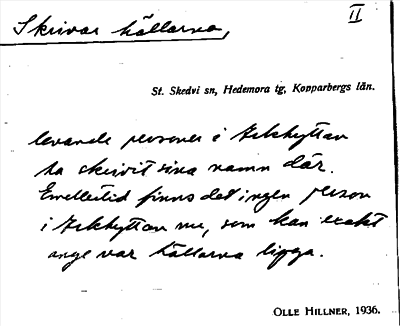 Skrivar hällarna,
II
St. Skedvi sn, Hedemora tg, Kopparbergs län.
levande personer i Arkhyttan
ha skrivit sina namn där.
Emellertid finns det ingen person
i Arkhyttan nu, som kan exakt
ange var hällarna ligga.
OLLE HILLNER, 1936.